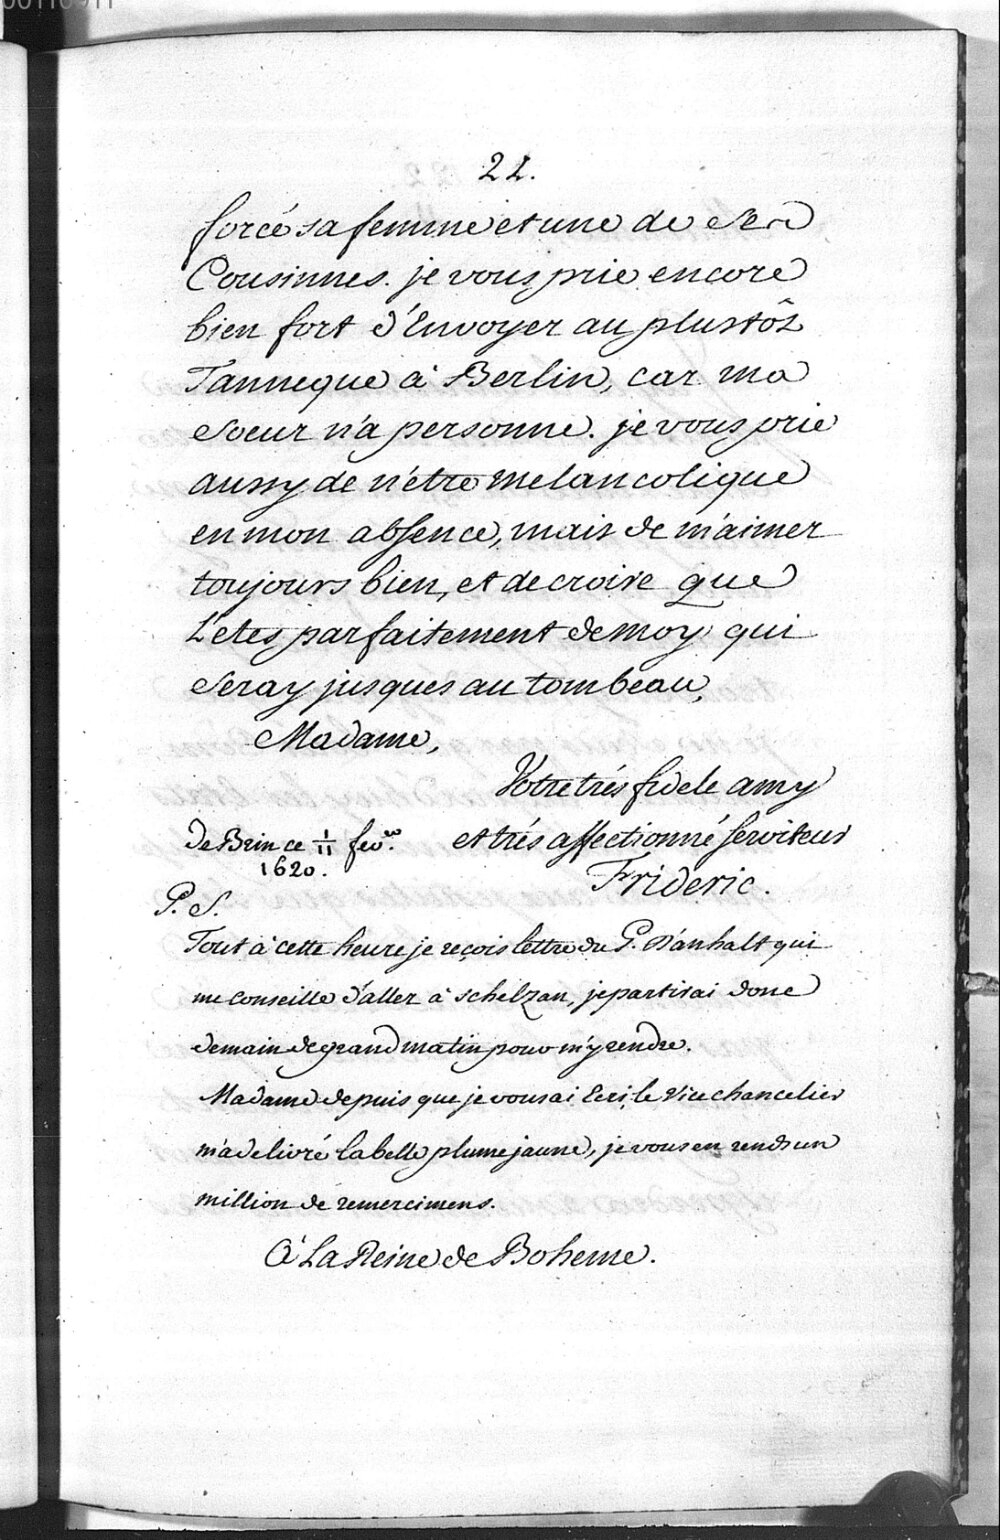 22.
forcé sa femme et une de Ses
Cousinnes. je vous prie encore
bien fort d'Envoyer au plustôt
Tanneque à Berlin, car ma
Soeur n'a personne. je vous prie
aussy de n'être melancolique
en mon absence, mais de m'aimer
toujours bien, et de croire que
L'etes parfaitement de moy qui
Seray jusques au tombeau,
Madame,
Votre trés fidele amy
et trés affectionné Serviteur
Frideric.
De Brin ce 1/11 fev.er
1620.
P. S.
Tout à cette heure je reçois lettre du P. D'anhalt qui
me conseille d'aller à Schelzan, je partirai donc
demain de grand matin pour m'y rendre.
Madame depuis que je vous ai Ecri, le Vice chancelier
m'a delivré la belle plume jaune, je vous en rends un
million de remercimens.
À La Reine de Boheme.